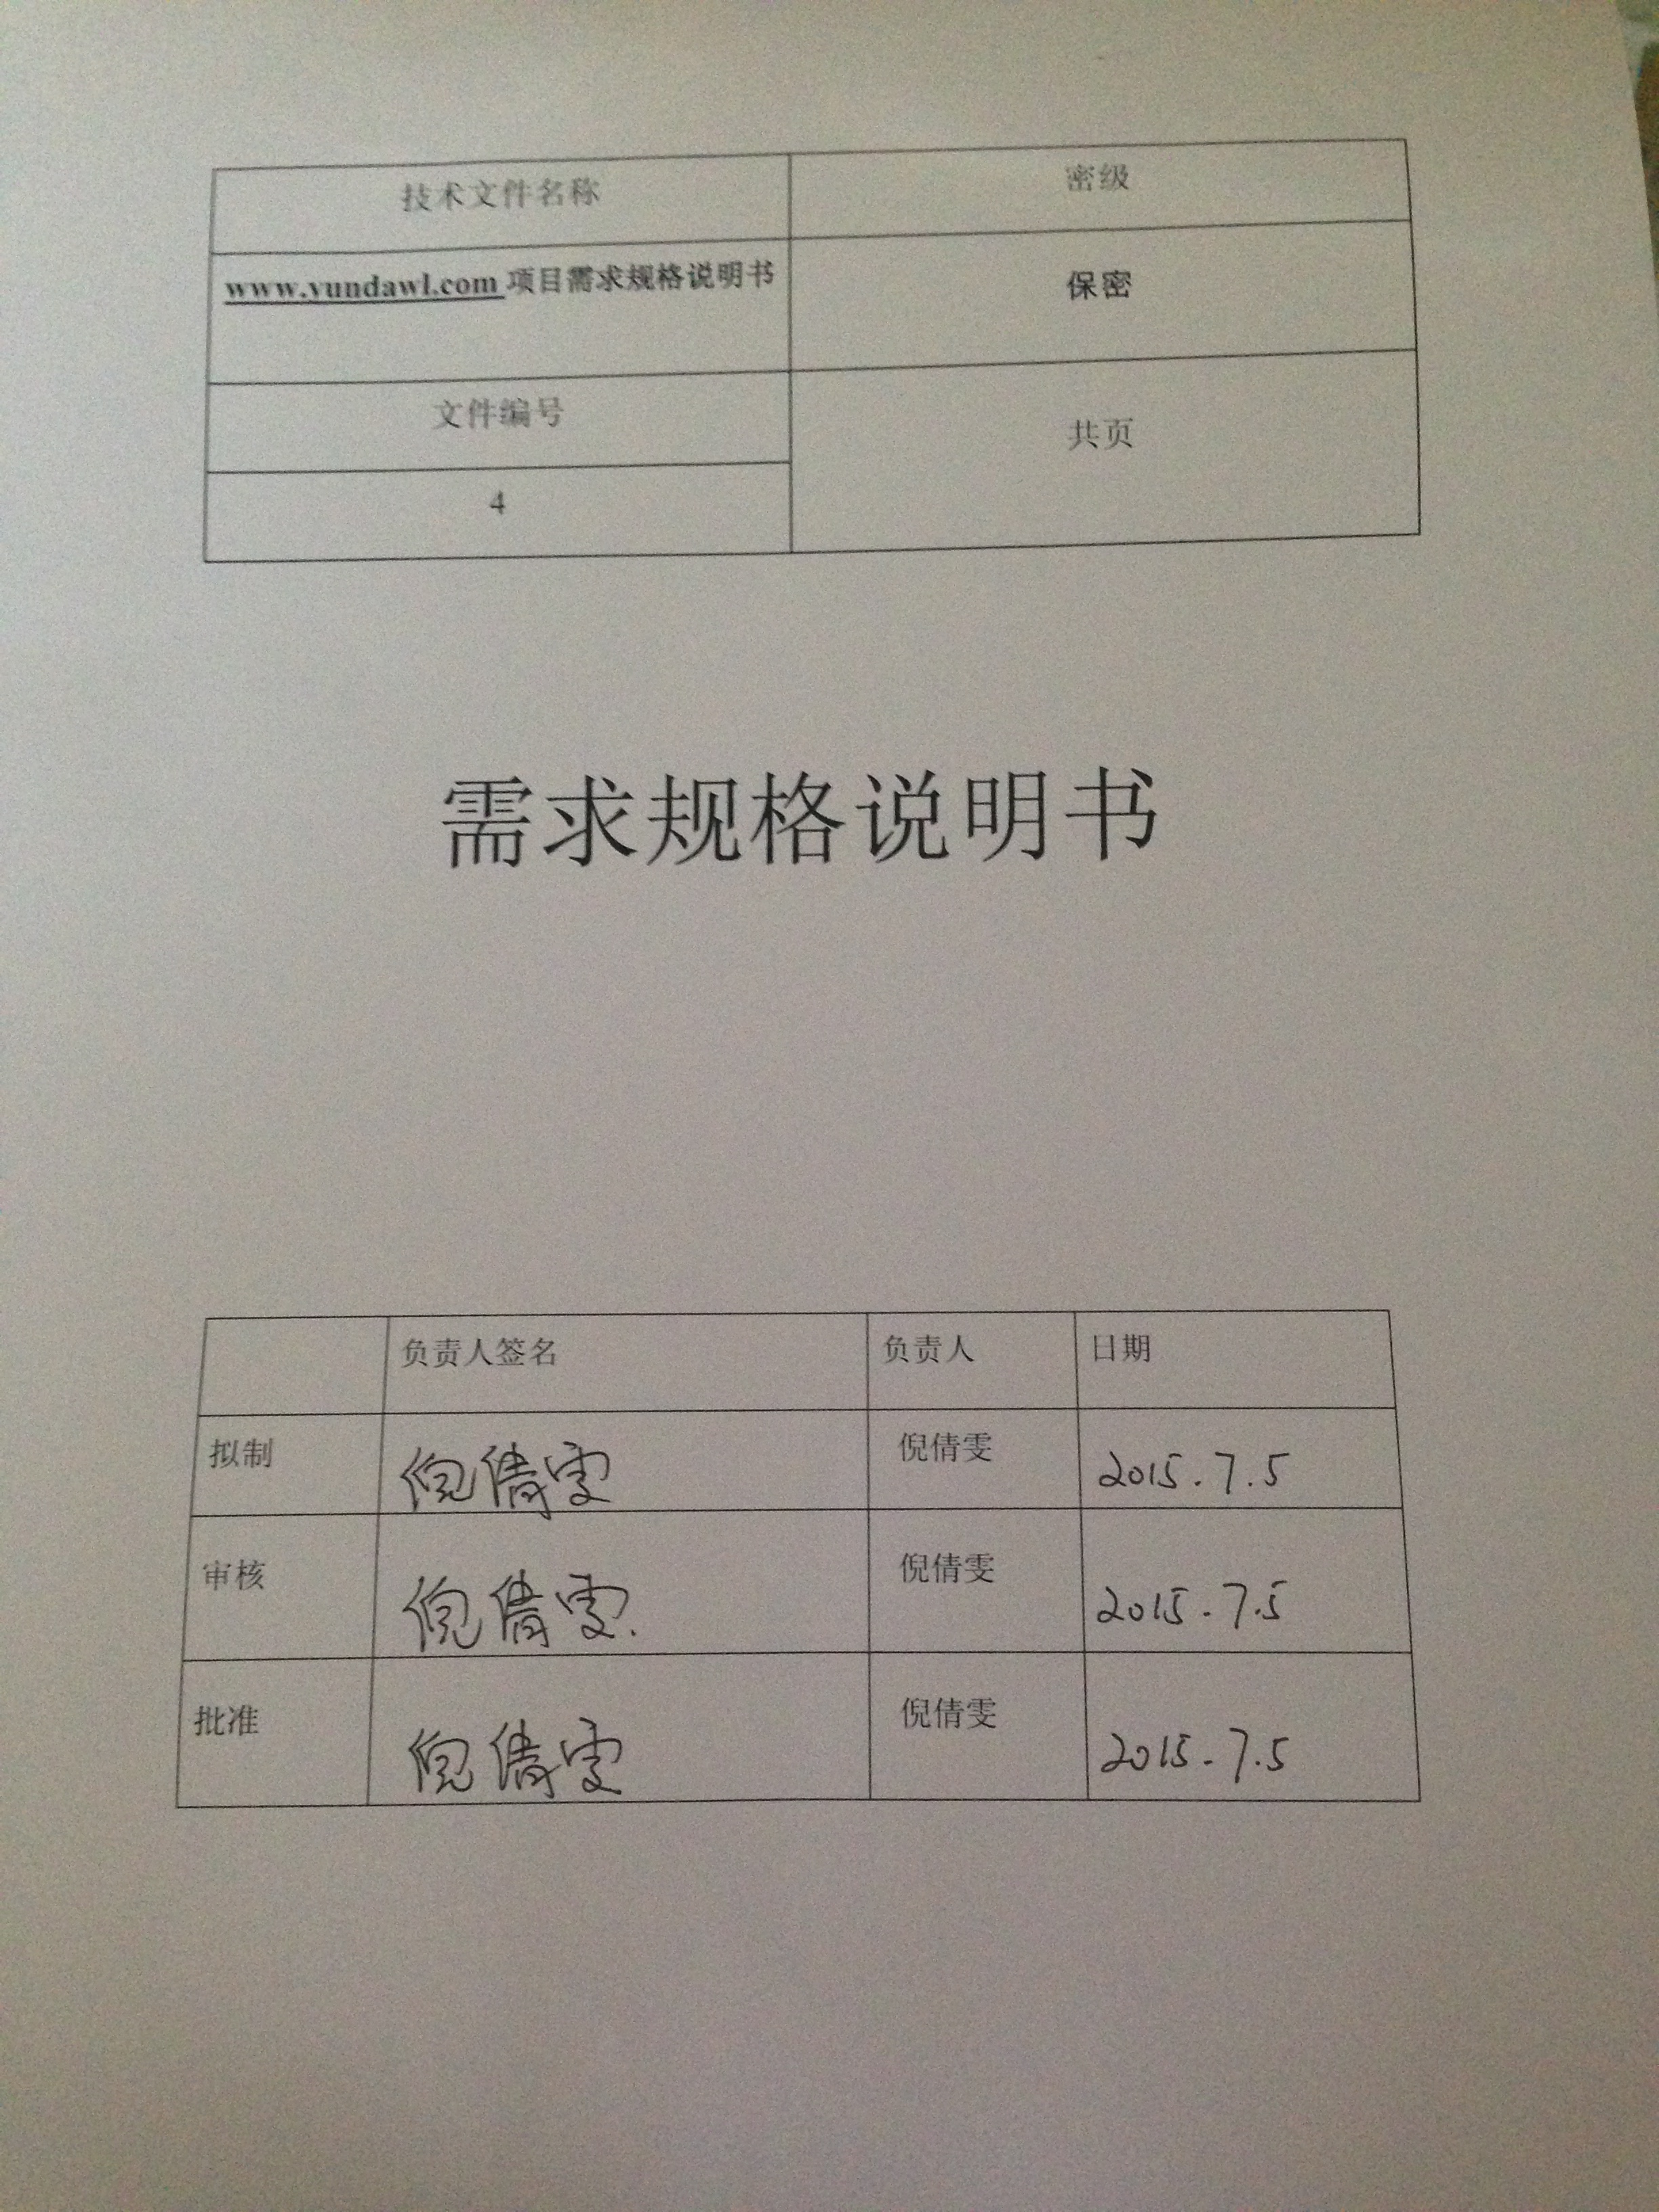 技术文件名称 密级
www.yundawl.com 项目需求规格说明书 保密
文件编号 共页
4
需求规格说明书
负责人签名 负责人 日期
拟制 倪倩雯 倪倩雯 2015.7.5
审核 倪倩雯. 倪倩雯 2015.7.5
批准 倪倩雯 倪倩雯 2015.7.5